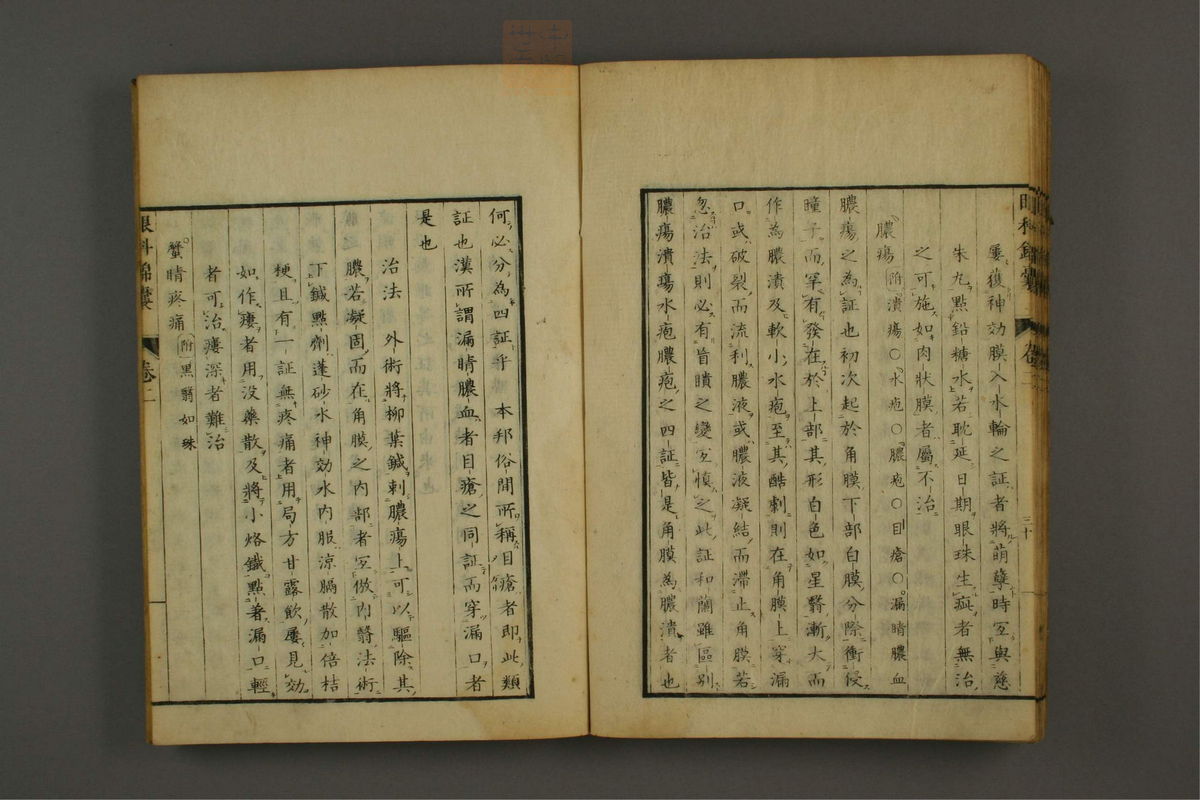 屢復神効膜入水輪之証者將萌孽時宜與慈
朱丸點鉛糖水若耽延日期眼珠生疵者無治
之可施如肉狀膜者屬不治
膿瘍附潰瘍○水疱○膿疱○目瘡○漏睛膿血
膿瘍之為証也初次起於角膜下部白膜分際衝侵
瞳子而罕有發在於上部其形白色如星翳漸大而
作為膿潰及軟小水疱至其酷劇則在角膜上穿漏
口或破裂而流利膿液或膿液凝結而滯止角膜若
忽治法則必有盲瞶之變宜慎之此証和蘭雖區別
膿瘍潰瘍水疱膿疱之四証皆是角膜為膿潰者也
三十
何必分為四証乎本邦俗間所稱目瘡者即此類
証也漢所謂漏睛膿血者目瘡之同証而穿漏口者
是也
治法 外術將柳葉鍼刺膿瘍上可以驅除其
膿若凝固而在角膜之内部者宜倣内翳法術
下鍼點劑蓬砂水神効水内服涼膈散加倍桔
梗且有一証無疼痛者用局方甘露飲屢見効
如作瘻者用没藥散及將小烙鐵點著漏口輕
者可治瘻深者難治
蟹睛疼痛附黑翳如珠
眼科錦囊 卷二